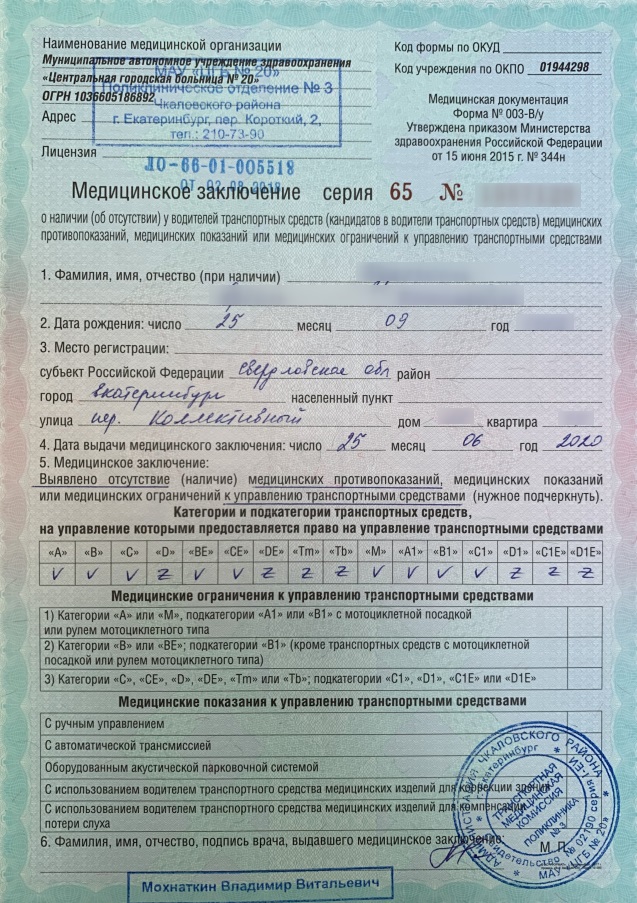 Наименование медицинской организации
Муниципальное автономное учреждение здравоохранения
«Центральная городская больница № 20»
ОГРН 1036605186892
МАУ «ЦГБ № 20»
Поликлиническое отделение № 3
Чкаловского района
г. Екатеринбург, пер. Короткий, 2,
тел.: 210-73-90
Адрес
Лицензия
ЛО-66-01-005518
от 02.08.2018
Код формы по ОКУД
Код учреждения по ОКПО 01944298
Медицинская документация
Форма № 003-В/у
Утверждена приказом Министерства
здравоохранения Российской Федерации
от 15 июня 2015 г. № 344н
Медицинское заключение серия 65 №
о наличии (об отсутствии) у водителей транспортных средств (кандидатов в водители транспортных средств) медицинских
противопоказаний, медицинских показаний или медицинских ограничений к управлению транспортными средствами
1. Фамилия, имя, отчество (при наличии)
2. Дата рождения: число 25 месяц 09 год
3. Место регистрации:
субъект Российской Федерации Свердловская обл район
город Екатеринбург населенный пункт
улица пер. Коллективный дом квартира
4. Дата выдачи медицинского заключения: число 25 месяц 06 год 2020
5. Медицинское заключение:
Выявлено отсутствие (наличие) медицинских противопоказаний, медицинских показаний
или медицинских ограничений к управлению транспортными средствами (нужное подчеркнуть).
Категории и подкатегории транспортных средств,
на управление которыми предоставляется право на управление транспортными средствами
«A» «B» «C» «D» «BE» «CE» «DE» «Tm» «Tb» «M» «A1» «B1» «C1» «D1» «C1E» «D1E»
V V V Z V V Z Z Z V V V V Z Z Z
Медицинские ограничения к управлению транспортными средствами
1) Категории «A» или «M», подкатегории «A1» или «B1» с мотоциклетной посадкой
или рулем мотоциклетного типа
2) Категории «B» или «BE»; подкатегории «B1» (кроме транспортных средств с мотоциклетной
посадкой или рулем мотоциклетного типа)
3) Категории «C», «CE», «D», «DE», «Tm» или «Tb»; подкатегории «C1», «D1», «C1E» или «D1E»
Медицинские показания к управлению транспортными средствами
С ручным управлением
С автоматической трансмиссией
Оборудованным акустической парковочной системой
С использованием водителем транспортного средства медицинских изделий для коррекции зрения
С использованием водителем транспортного средства медицинских изделий для компенсации
потери слуха
6. Фамилия, имя, отчество, подпись врача, выдавшего медицинское заключение:
М. П.
ТРАНСПОРТНАЯ
МЕДИЦИНСКАЯ
КОМИССИЯ
ПОЛИКЛИНИКА
№ 3
Мохнаткин Владимир Витальевич